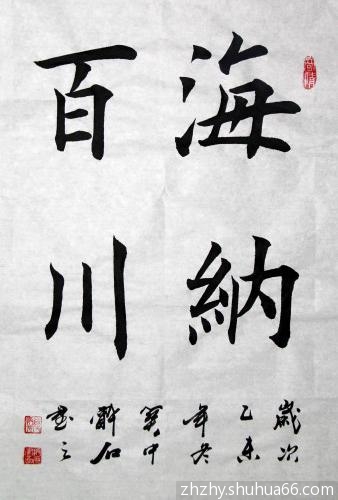 海納
百川
歲次
乙未
年冬
中
石
書之
zhzhy.shuhua66.com